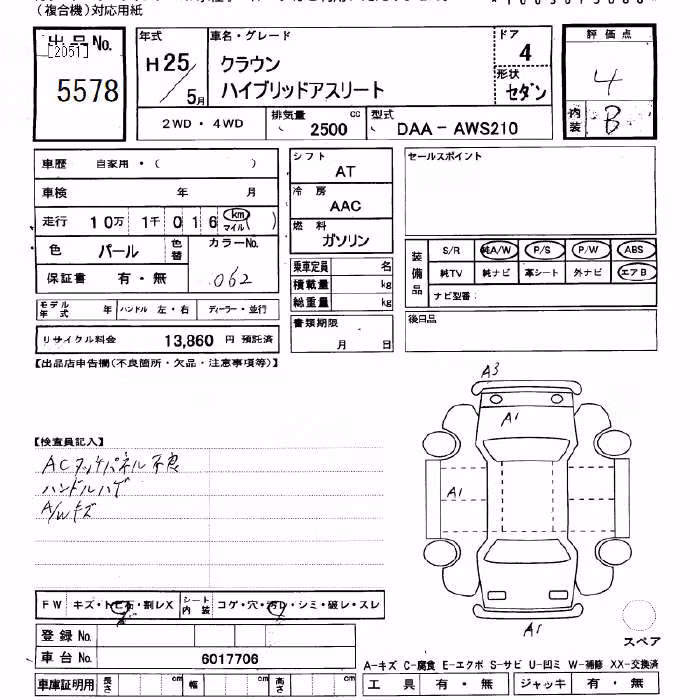 (複合機)対応用紙
出品No.
[2051]
5578
年式
H25/5月
車名・グレード
クラウン
ハイブリッドアスリート
ドア
4
形状
セダン
評価点
4
内装
B
2WD・4WD
排気量 2500 cc
型式 DAA-AWS210
車歴 自家用・( )
車検 年 月
走行 10万 1千 0 1 6 km マイル ( )
色 パール 色替
カラーNo.
062
保証書 有・無
モデル年式 年 ハンドル 左・右 ディーラー・並行
リサイクル料金 13,860 円 預託済
シフト
AT
冷房
AAC
燃料
ガソリン
乗車定員 名
積載量 kg
総重量 kg
書類期限
月 日
セールスポイント
装備品
S/R 純A/W P/S P/W ABS
純TV 純ナビ 革シート 外ナビ エアB
ナビ型番:
後日品
【出品店申告欄(不良箇所・欠品・注意事項等)】
【検査員記入】
ACタッチパネル不良
ハンドルハゲ
A/Wキズ
A3
A1
A1
A1
スペア
FW キズ・トビ石・割レX シート内装 コゲ・穴・汚レ・シミ・破レ・スレ
登録No.
車台No. 6017706
車庫証明用 長さ cm 幅 cm 高さ cm
A-キズ C-腐食 E-エクボ S-サビ U-凹ミ W-補修 XX-交換済
工具 有・無 ジャッキ 有・無